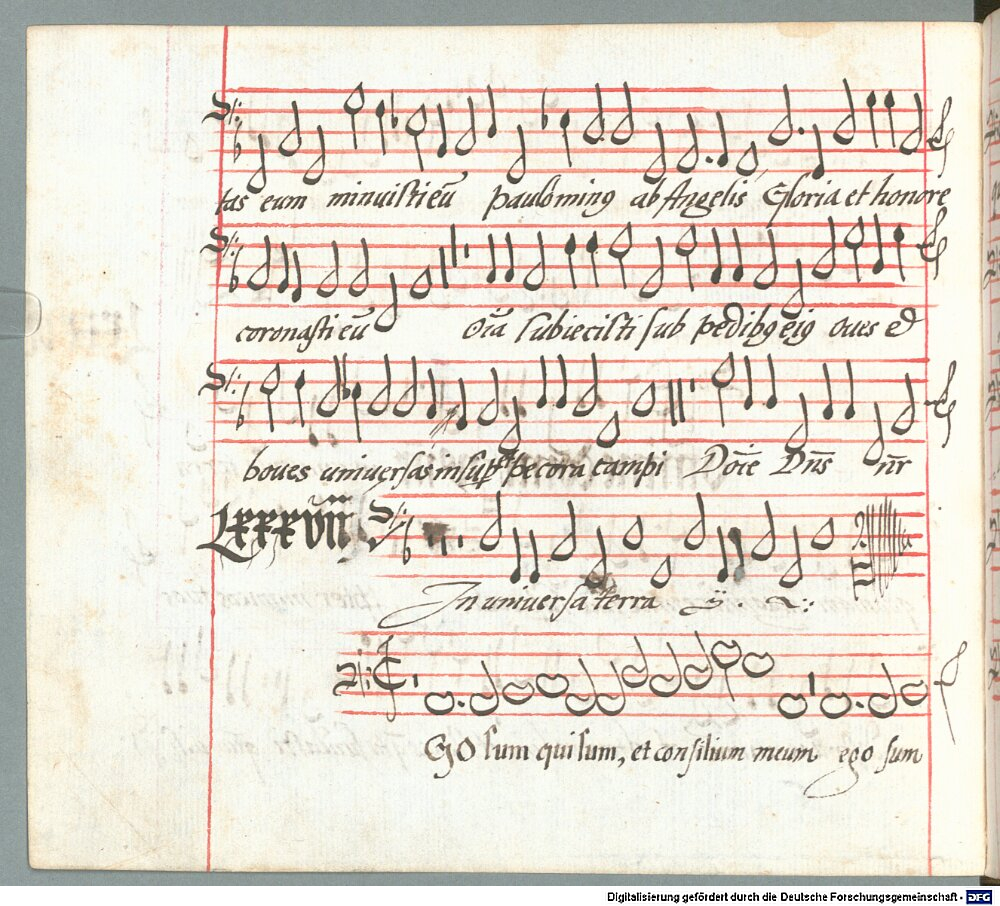 tas eum minuisti eū paulomin9 ab Angelis Gloria et honore
coronasti eū Oīa subiecisti sub pedib9 ei9 oues et
boues universas insup pecora campi Dn̄s nr̄
LXXXVII
In universa terra ij
EGO sum qui sum, et consilium meum ego sum
Digitalisierung gefördert durch die Deutsche Forschungsgemeinschaft - DFG